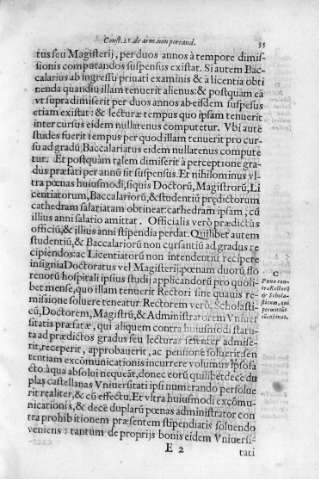 Const. 25. de arm. non portand. 35
tus seu Magisterij, per duos annos à tempore dimis-
sionis computandos suspensus existat. Si autem Bac-
calarius ab ingressu priuati examinis & à licentia obti
nenda quandiu illam tenuerit alienus: & postquam eã
vt supra dimiserit per duos annos ab eisdem suspẽsus
etiam existat: & lecturæ tempus quo ipsam tenuerit
inter cursus eidem nullatenus computetur. Vbi autẽ
studes fuerit tempus per quod illam tenuerit pro cur-
su ad gradũ Baccalariatus eidem nullatenus compute
tur. Et postquàm talem dimiserit à perceptione gra-
dus præfati per annũ sit suspensus. Et nihilominus vl-
tra pœnas huiusmodi, siquis Doctorũ, Magistrorũ, Li
centiatorum, Baccalariorũ, & studentiũ prędictorum
cathedram salariatam obtineat: cathedram ipsam, cũ
illius anni salario amittat. Officialis verò prædictus
officiũ, & illius anni stipendia perdat. Quilibet autem
studentiũ, & Baccalariorũ non cursantiũ ad gradus re
cipiendos: ac Licentiatorũ non intendentiũ recipere
insignia Doctoratus vel Magisterij: pœnam duorũ flo
renorũ hospitali ipsius studij applicandorũ pro quoli-
bet mense, quo illam tenuerit Rectori sine quauis re-
missione soluere teneatur Rectorem verò, Scholasti-
cũ, Doctorem, Magistrũ, & Administratorem Vniuer
sitatis præfatæ, qui aliquem contra huiusmodi statu-
ta ad prædictos gradus seu lecturas admise-
rit, receperit, approbauerit, ac pensione soluerit sen
tentiam excõmunicationis incurrere volumus ipso fa
cto à qua absolui nequeãt, donec eorũ quilibet decẽ du
plas castellanas Vniuersitati ipsi numerando persolue
rit realiter, & cũ effectu. Et vltra huiusmodi excõmu-
nicationis, & decẽ duplarũ pœnas administrator con
tra prohibitionem præsentem stipendiatis soluendo
veniens: tantum de proprijs bonis eidem Vniuersi-
E 2 tati
C
Pœna con-
tra Rectorẽ
& Schola-
sticum, qui
permittũt